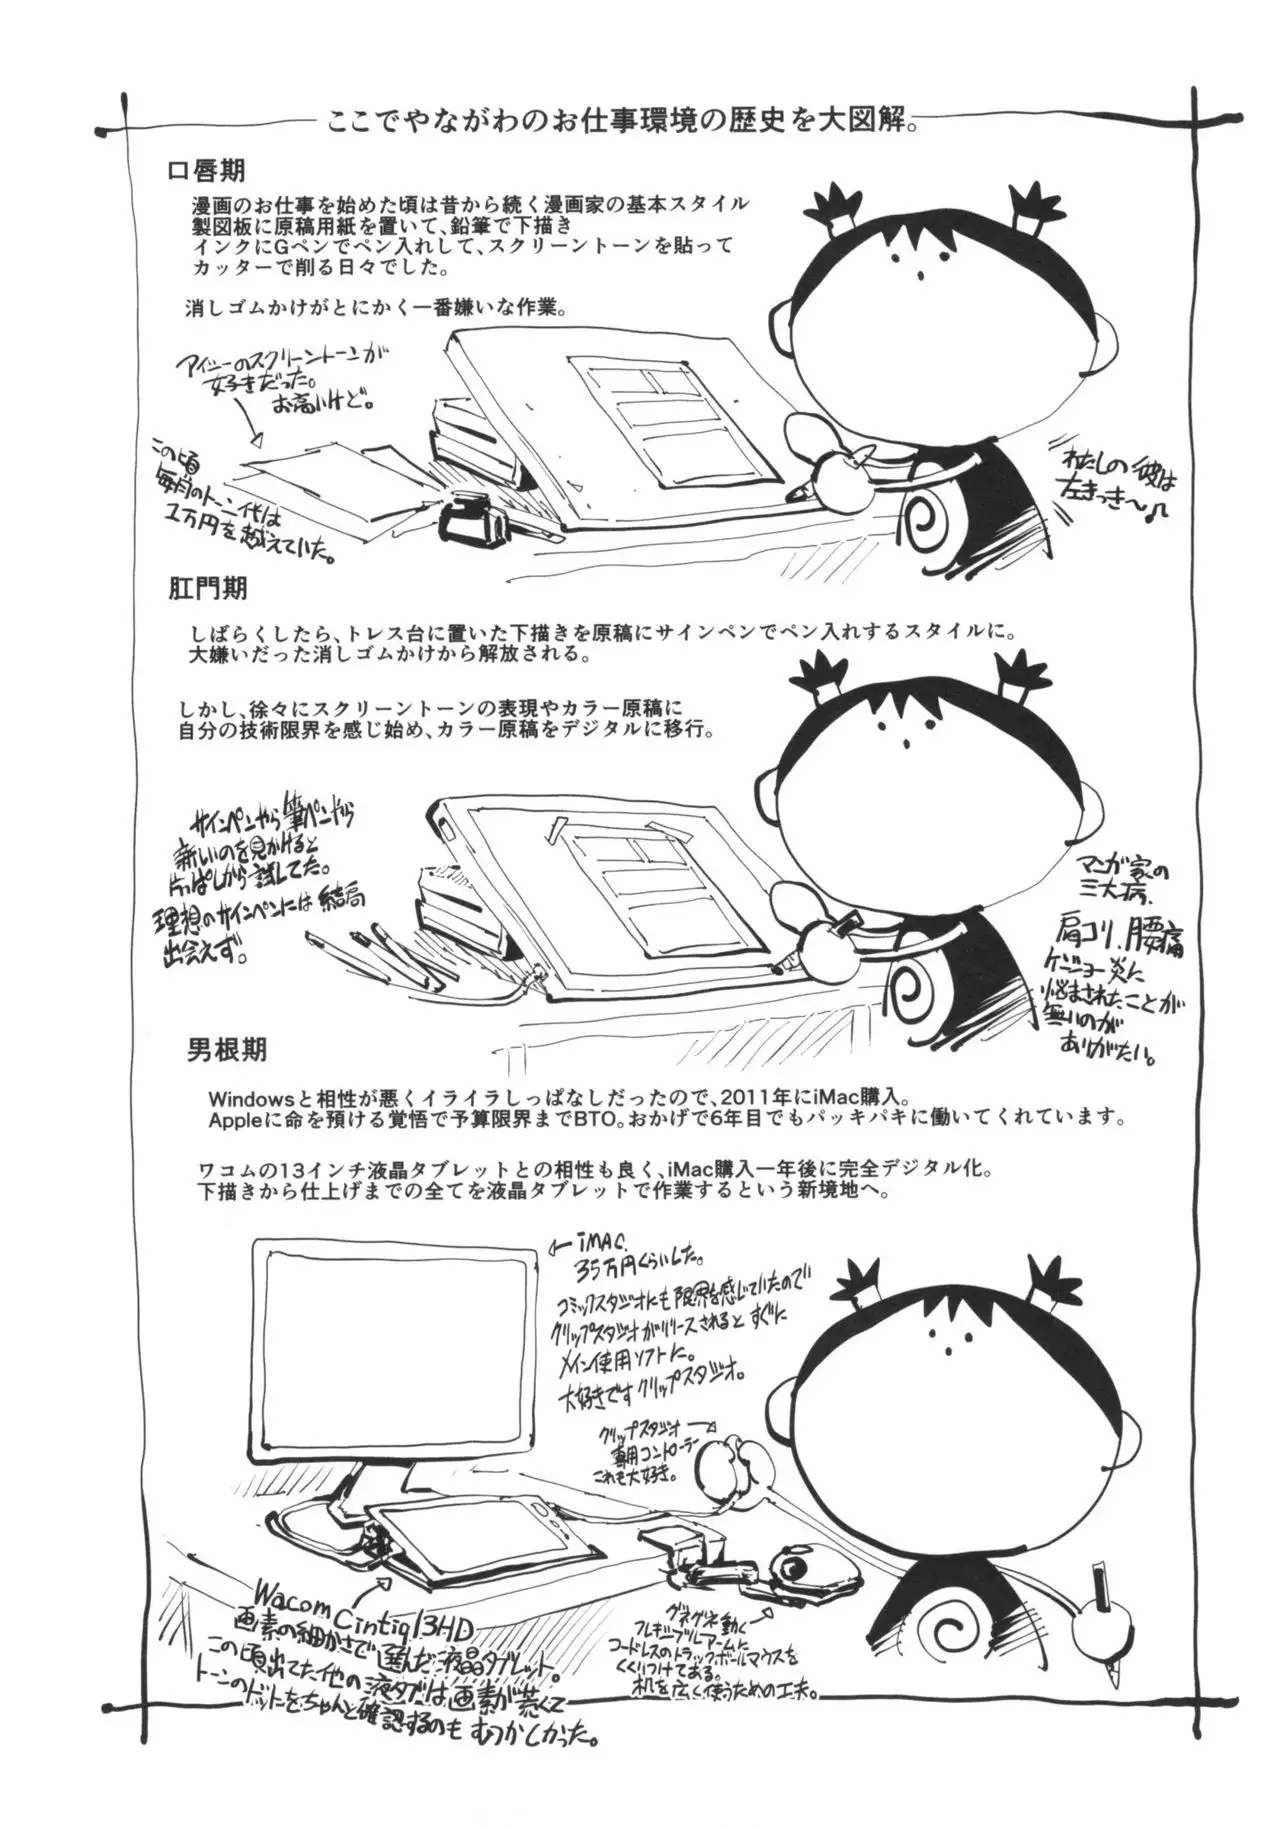 ここでやながわのお仕事環境の歴史を大図解。
口唇期
漫画のお仕事を始めた頃は昔から続く漫画家の基本スタイル
製図板に原稿用紙を置いて、鉛筆で下描き
インクにGペンでペン入れして、スクリーントーンを貼って
カッターで削る日々でした。
消しゴムかけがとにかく一番嫌いな作業。
アイシーのスクリーントーンが
好きだった。
お高いけど。
この頃
毎月のトーン代は
1万円を越えていた。
わたしの彼は
左きっき〜♪
肛門期
しばらくしたら、トレス台に置いた下描きを原稿にサインペンでペン入れするスタイルに。
大嫌いだった消しゴムかけから解放される。
しかし、徐々にスクリーントーンの表現やカラー原稿に
自分の技術限界を感じ始め、カラー原稿をデジタルに移行。
サインペンやら筆ペンやら
新しいのを見かけると
片っぱしから試してた。
理想のサインペンには結局
出会えず。
マンガ家の
三大病、
肩コリ、腰痛
ケンジョー炎に
悩まされたことが
無いのが
ありがたい。
男根期
Windowsと相性が悪くイライラしっぱなしだったので、2011年にiMac購入。
Appleに命を預ける覚悟で予算限界までBTO。おかげで6年目でもバッキバキに働いてくれています。
ワコムの13インチ液晶タブレットとの相性も良く、iMac購入一年後に完全デジタル化。
下描きから仕上げまでの全てを液晶タブレットで作業するという新境地へ。
iMAC.
35万円くらいした。
コミックスタジオにも限界を感じていたので
クリップスタジオがリリースされるとすぐに
メイン使用ソフトに。
大好きですクリップスタジオ。
クリップスタジオ
専用コントローラー
これも大好き。
Wacom Cintiq 13HD
画素の細かさで選んだ液晶タブレット。
この頃出てた他の液タブは画素が荒くて
トーンのドットをちゃんと確認するのもむつかしかった。
グネグネ動く
フレキシブルアームに
コードレスのトラックボールマウスを
くくりつけてある。
机を広く使うための工夫。